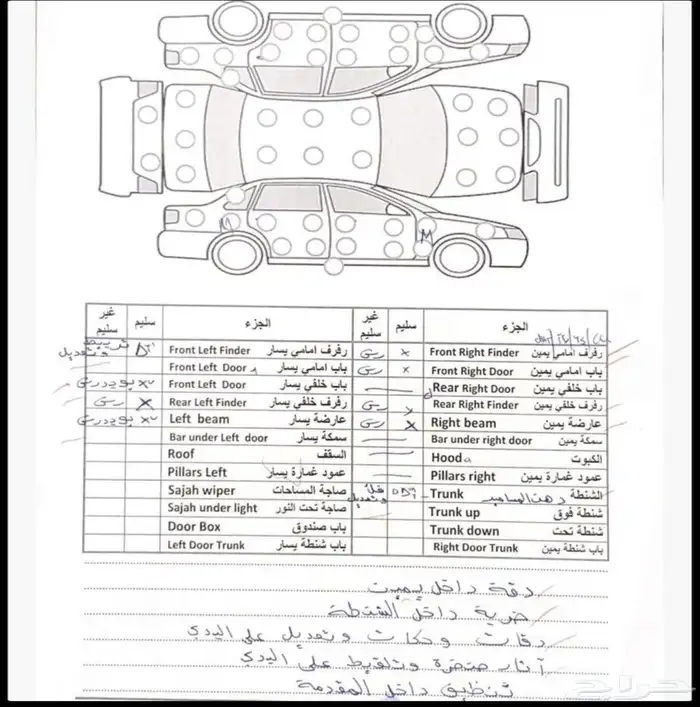 M
M
غير سليم سليم الجزء غير سليم سليم الجزء
Front Left Finder رفرف امامي يسار رش x Front Right Finder رفرف امامي يمين
Front Left Door باب امامي يسار رش x Front Right Door باب امامي يمين
Front Left Door باب خلفي يسار Rear Right Door باب خلفي يمين
رش X Rear Left Finder رفرف خلفي يسار رش x Rear Right Finder رفرف خلفي يمين
Left beam عارضة يسار رش X Right beam عارضة يمين
Bar under Left door سمكة يسار Bar under right door سمكة يمين
Roof السقف Hood الكبوت
Pillars Left عمود غمارة يسار Pillars right عمود غمارة يمين
Sajah wiper صاجة المساحات Trunk الشنطة
Sajah under light صاجة تحت النور Trunk up شنطة فوق
Door Box باب صندوق Trunk down شنطة تحت
Left Door Trunk باب شنطة يسار Right Door Trunk باب شنطة يمين
دقة داخل يمين
ضربة داخل الشنطة
دقات وحكات وتعديل على البدي
آثار صنفرة وتلقيط على البدي
تنظيف داخل المقدمة
حراج